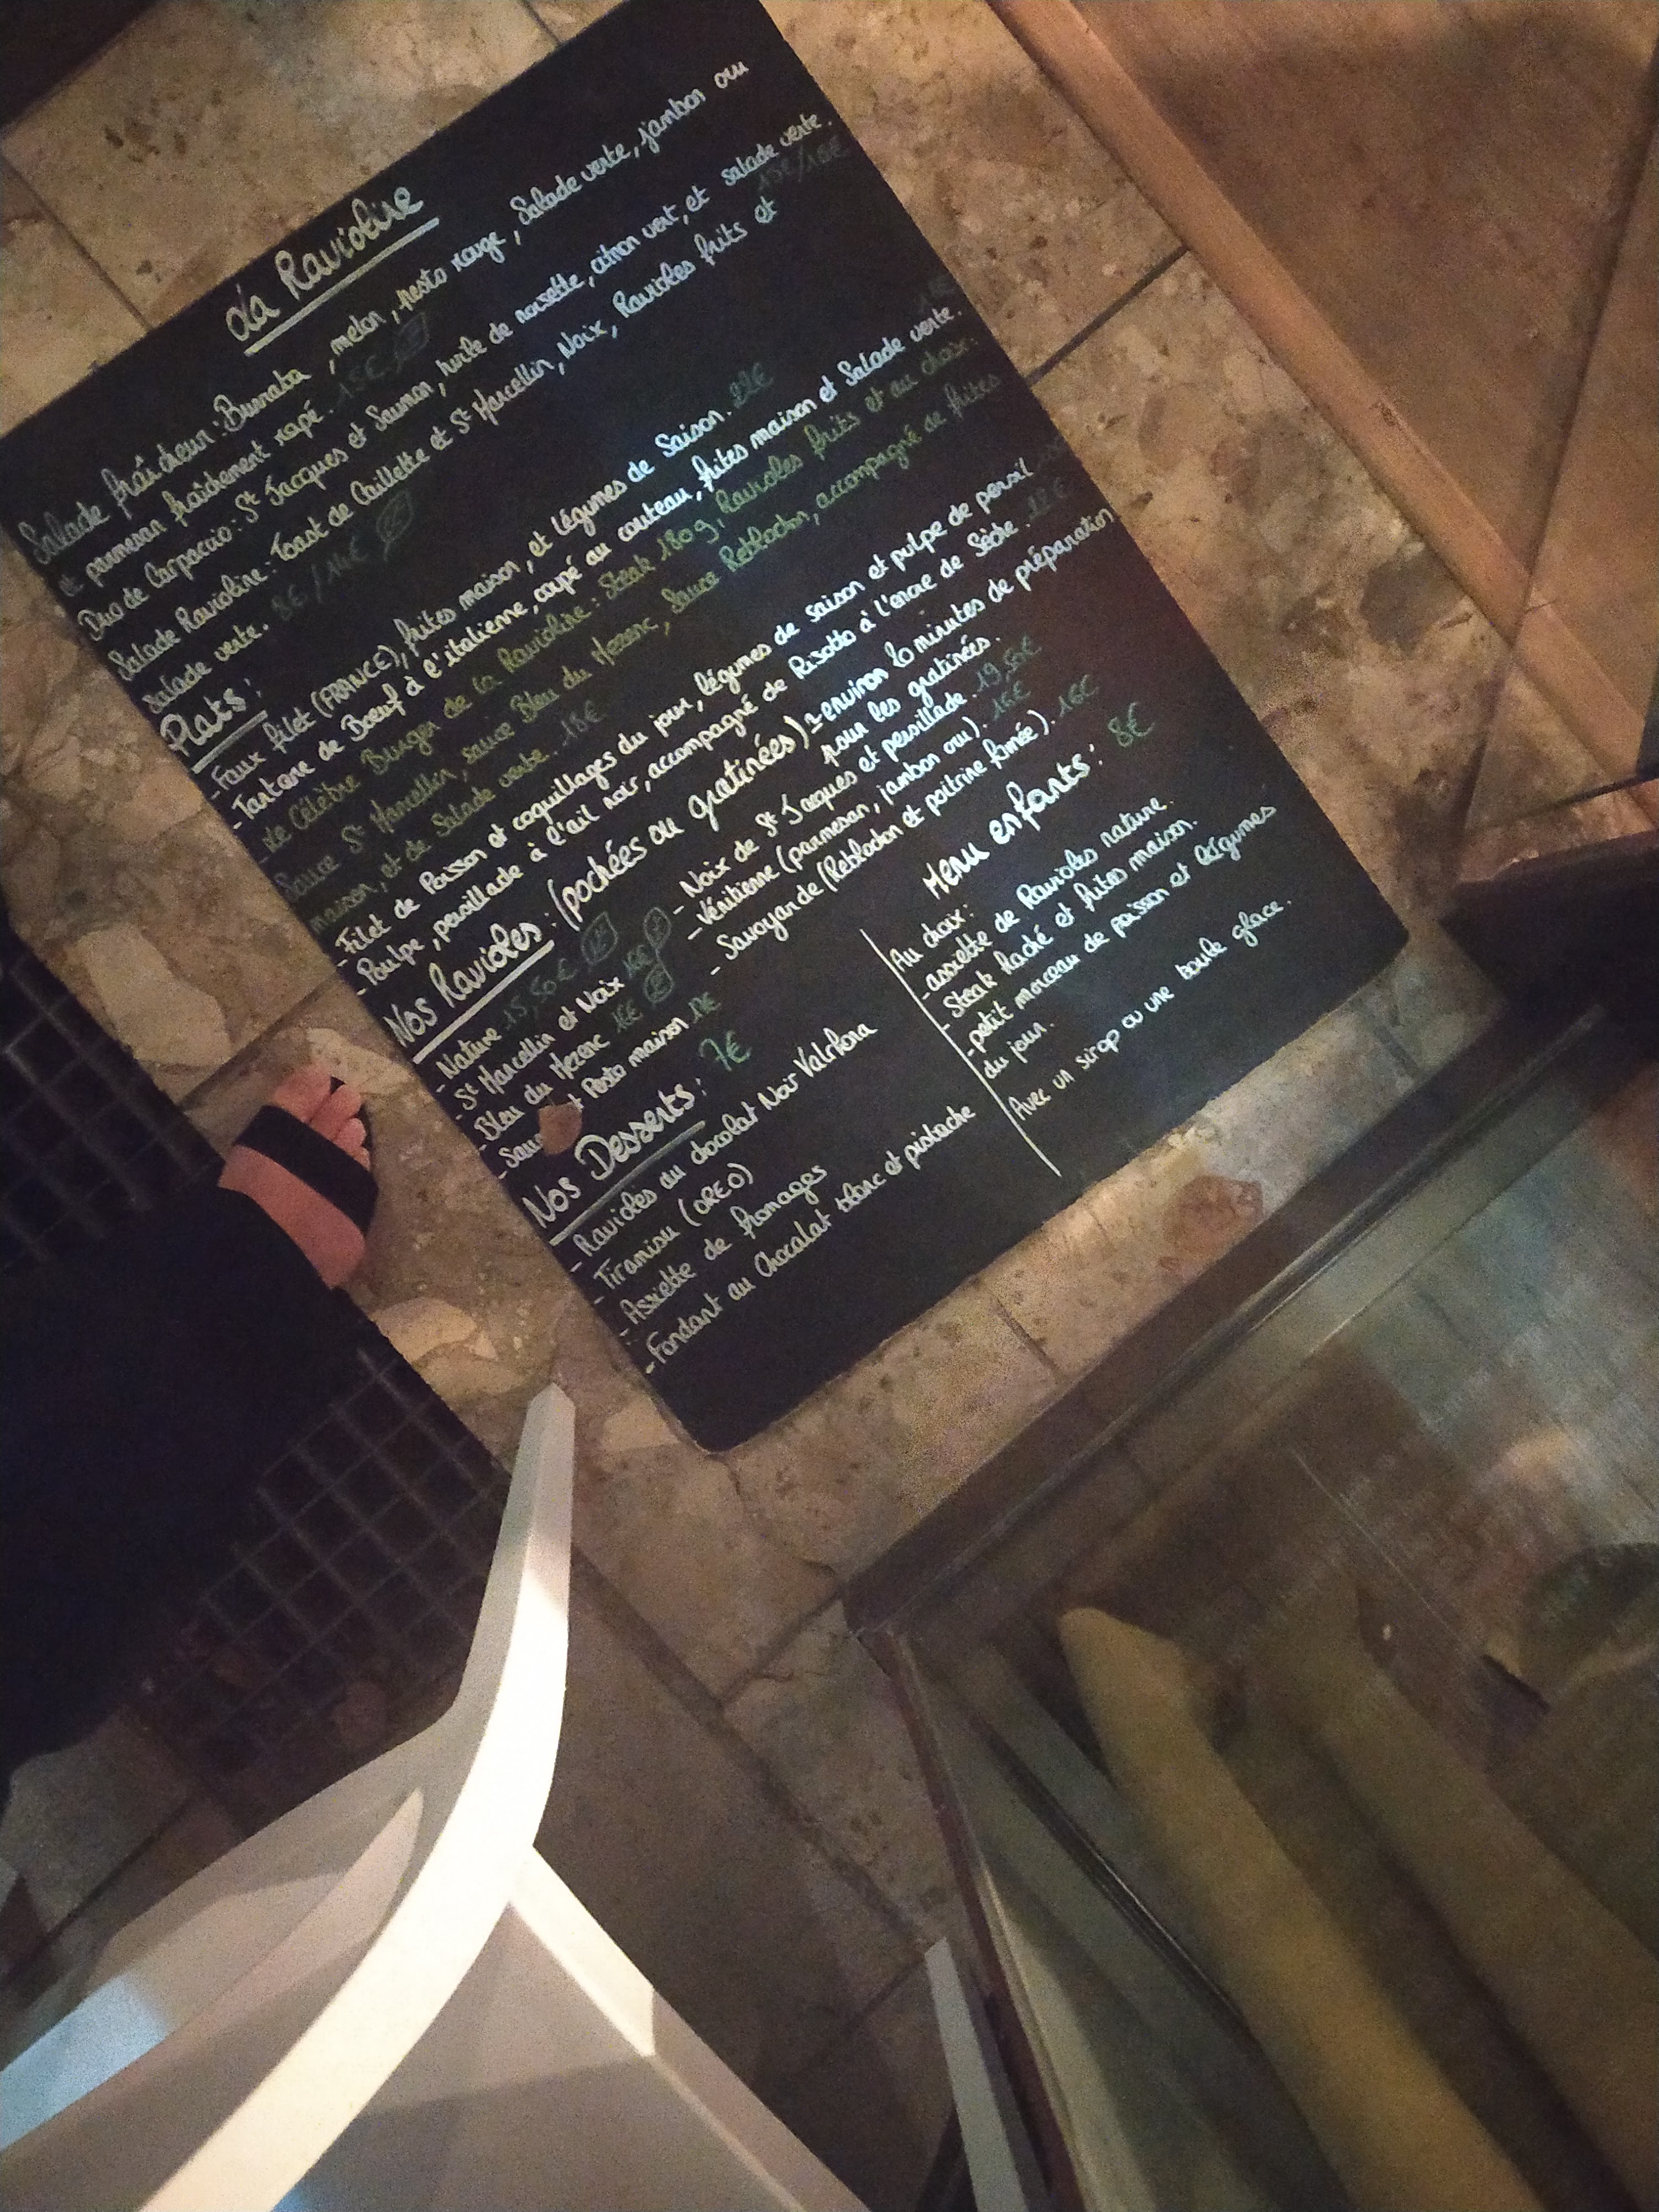 La Ravioline
Salade fraîcheur: Burrata, melon, pesto rouge, Salade verte, jambon cru
et parmesan fraîchement rapé. 15€
Duo de Carpaccio: St Jacques et Saumon, huile de noisette, citron vert, et salade verte.
Salade Ravioline: Toast de Caillette et St Marcellin, Noix, Ravioles frits et
salade verte. 8€/14€
Plats:
- Faux filet (FRANCE), frites maison, et légumes de Saison. 22€
- Tartare de Bœuf à l'italienne, coupé au couteau, frites maison et Salade verte.
- Le Célèbre Burger de la Ravioline: Steak 180g, Ravioles frits et au choix:
Sauce St Marcellin, sauce Bleu du Mezenc, Sauce Reblochon, accompagné de frites
maison, et de Salade verte. 18€
- Filet de Poisson et coquillages du jour, légumes de saison et pulpe de persil
- Poulpe, persillade à l'ail noir, accompagné de Risotto à l'encre de Sèche.
Nos Ravioles: (pochées ou gratinées) environ 20 minutes de préparation
pour les gratinées.
- Nature 15,50€
- St Marcellin et Noix 16€
- Bleu du Mezenc 16€
- Pesto maison
- Noix de St Jacques et persillade. 19,50€
- Vénitienne (parmesan, jambon cru). 16€
- Savoyarde (Reblochon et poitrine fumée). 16€
Nos Desserts: 7€
- Ravioles au chocolat Noir Valrhona
- Tiramisu (OREO)
- Assiette de fromages
- Fondant au Chocolat blanc et pistache
Menu enfants: 8€
Au choix:
- assiette de Ravioles nature.
- Steak haché et frites maison.
- petit morceau de poisson et légumes
du jour.
Avec un sirop ou une boule glace.